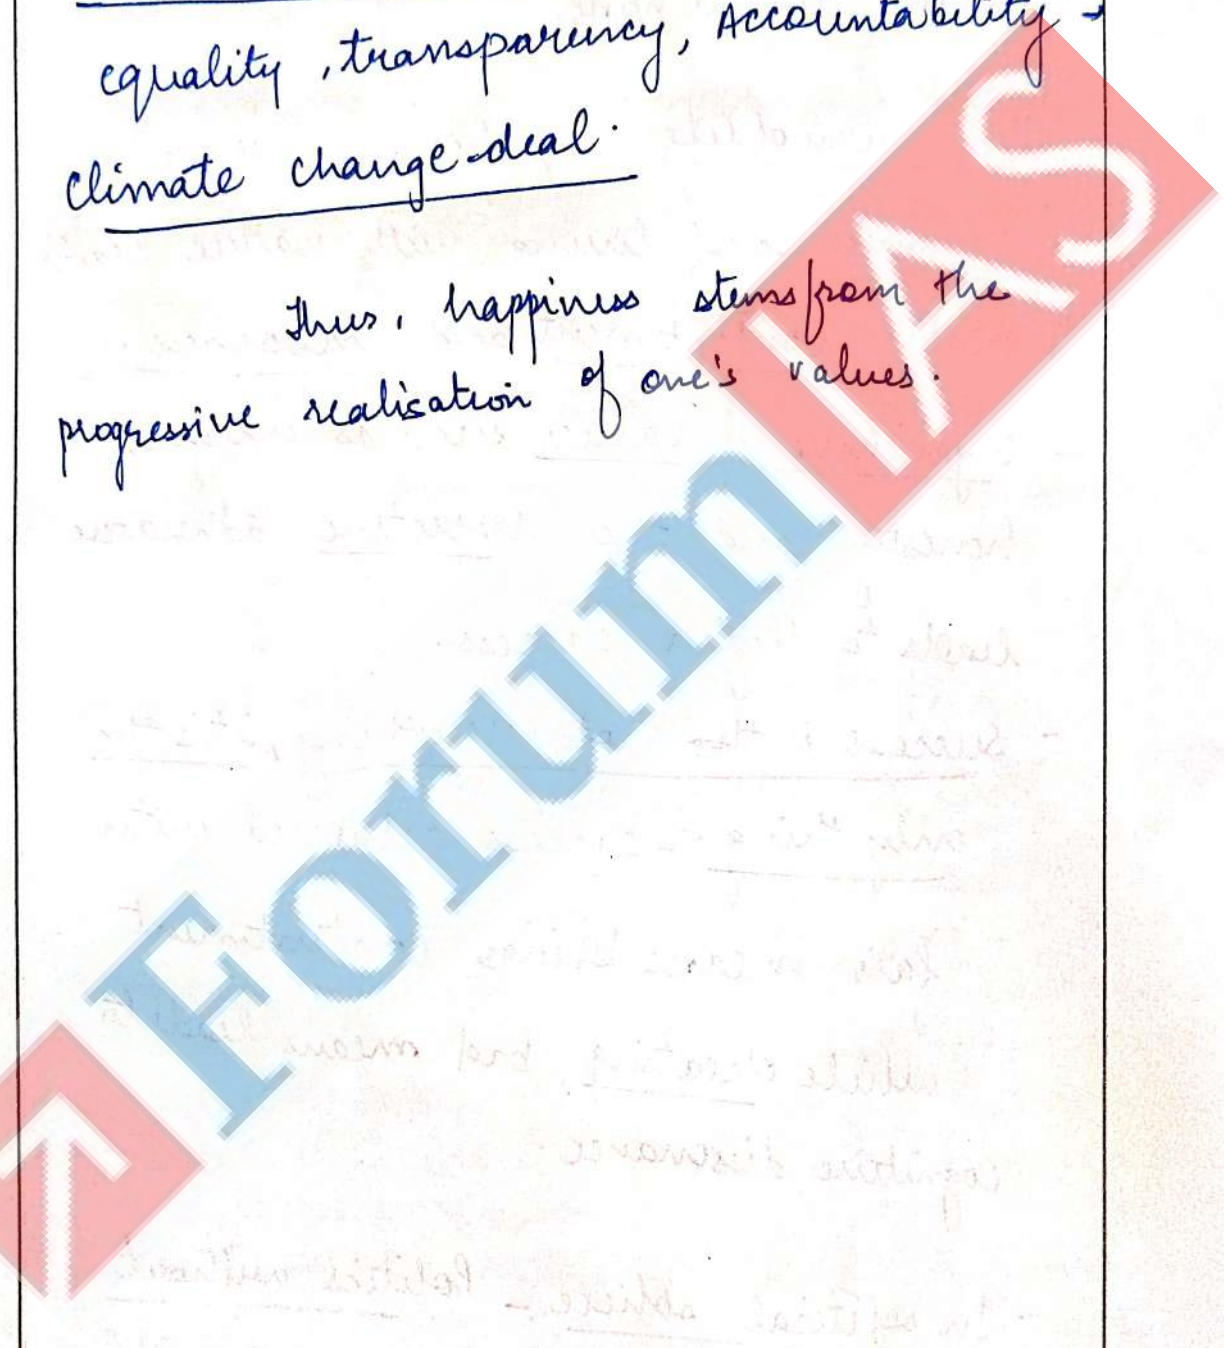 equality, transparency, Accountability →
Climate change-deal.
Thus, happiness stems from the
progressive realisation of one's values.
Forum IAS